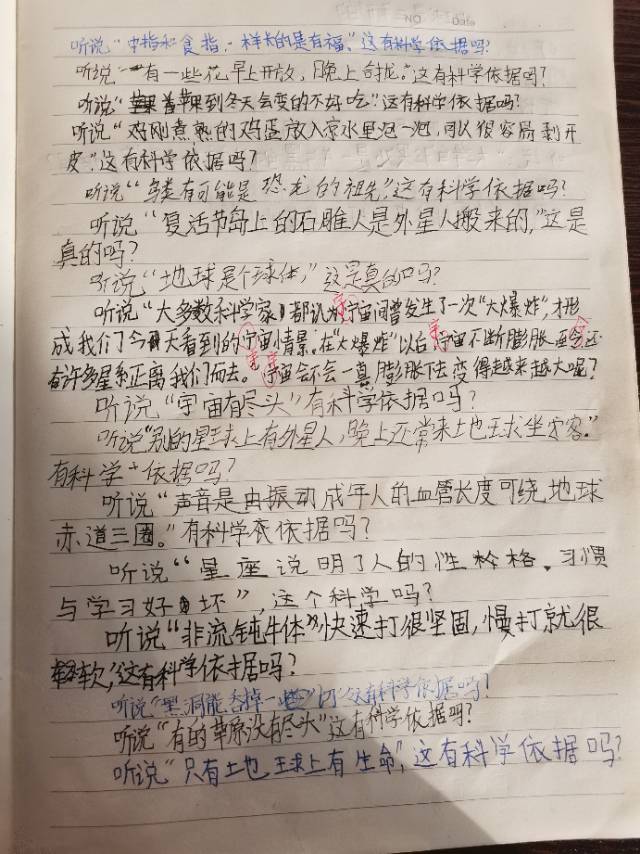 NO. Date
听说“中指和食指一样长的是有福”,这有科学依据吗?
听说“有一些花早上开放,晚上合拢。”这有科学依据吗?
听说“苹果到冬天会变的不好吃”这有科学依据吗?
听说“鸡刚煮熟的鸡蛋放入凉水里泡一泡,可以很容易剥开
皮”。这有科学依据吗?
听说“鸟类有可能是恐龙的祖先”,这有科学依据吗?
听说“复活节岛上的石雕人是外星人搬来的,”这是
真的吗?
听说“地球是个球体,”这是真的吗?
听说“大多数科学家都认为宇宙间曾发生了一次“大爆炸”,才形
成我们今天看到的宇宙情景。在“大爆炸”以后宇宙不断膨胀,还会还
有许多星系正离我们而去。宇宙会不会一直膨胀下去变得越来越大呢?
听说“宇宙有尽头”有科学依据吗?
听说“别的星球上有外星人,晚上还常来地球坐客。”
有科学依据吗?
听说“声音是由振动成年人的血管长度可绕地球
赤道三圈。”有科学依据吗?
听说“星座说明了人的性格、习惯
与学习好坏”,这个科学吗?
听说“非流钝牛体”快速打很坚固,慢打就很
软,”这有科学依据吗?
听说“黑洞能吞掉一些”,这有科学依据吗?
听说“有的草原没有尽头”这有科学依据吗?
听说“只有地球上有生命”,这有科学依据吗?